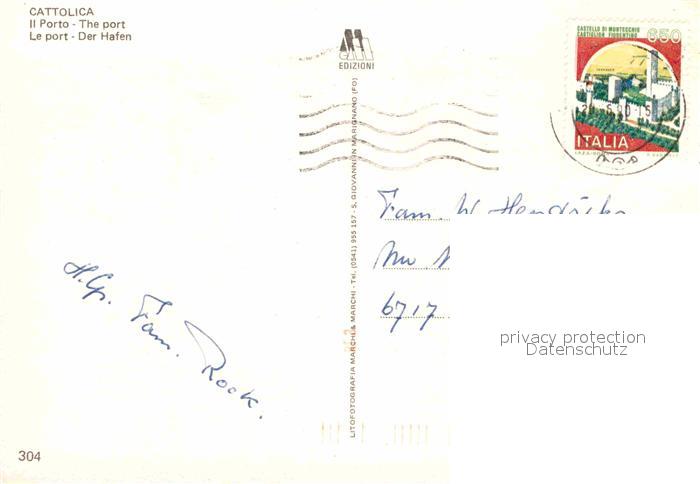 CATTOLICA
Il Porto - The port
Le port - Der Hafen
EDIZIONI
CASTELLO DI MONTECCHIO
CASTIGLION FIORENTINO
650
ITALIA
LITOFOTOGRAFIA MARCHI & MARCHI - Tel. (0541) 955 157 - S. GIOVANNI IN MARIGNANO (FO)
Fam. W. Hendrickx
6717
H. Gr. Fam. Rook.
privacy protection
Datenschutz
304